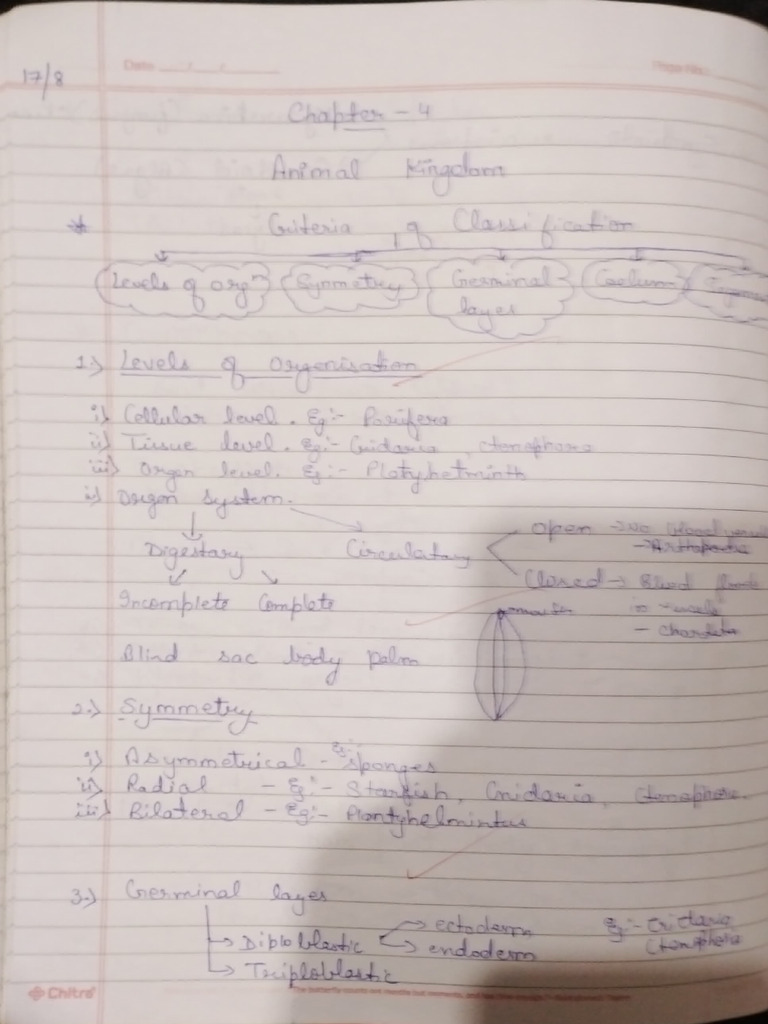 17/8
Date
Page No.
Chapter - 4
Animal Kingdom
* Criteria of Classification
Levels of orgn Symmetry Germinal layer Coelum
1.) Levels of Organisation
i) Cellular level. Eg:- Porifera
ii) Tissue level. Eg:- Cnidaria, ctenophora
iii) Organ level. Eg:- Platyhelminth
iv) Organ system.
Digestary Circulatary
Open → No blood
→ Arthopoda
Closed → Blood
in vessels
- Chordata
Incomplete Complete
Blind sac body palm
2.) Symmetry
i) Asymmetrical - Eg:- sponges
ii) Radial - Eg:- Starfish, Cnidaria, Ctenophora.
iii) Bilateral - Eg:- Plantyhelmintus
3.) Germinal layer
→ Diploblastic → ectoderm Eg:- Cnidaria
→ endoderm Ctenophora
→ Triploblastic
Chitra